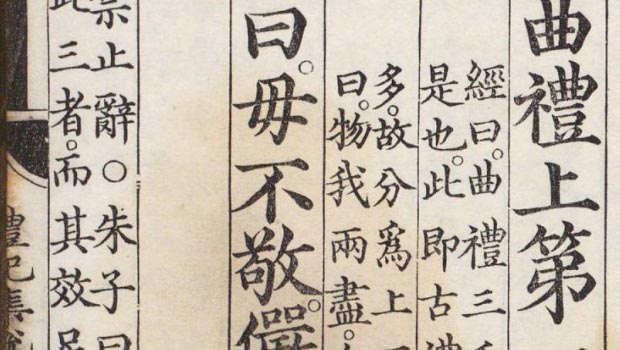 曲禮上第
經曰。曲禮三
是也。此即古禮
多。故分爲上
曰。物我兩盡。
曰。毋不敬。儼
禁止辭。○朱子曰
此三者。而其效足
禮記集說